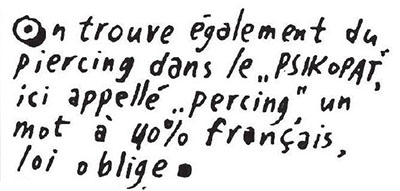 On trouve également du
piercing dans le „PSIKOPAT",
ici appellé „percing", un
mot à 40% français,
loi oblige.